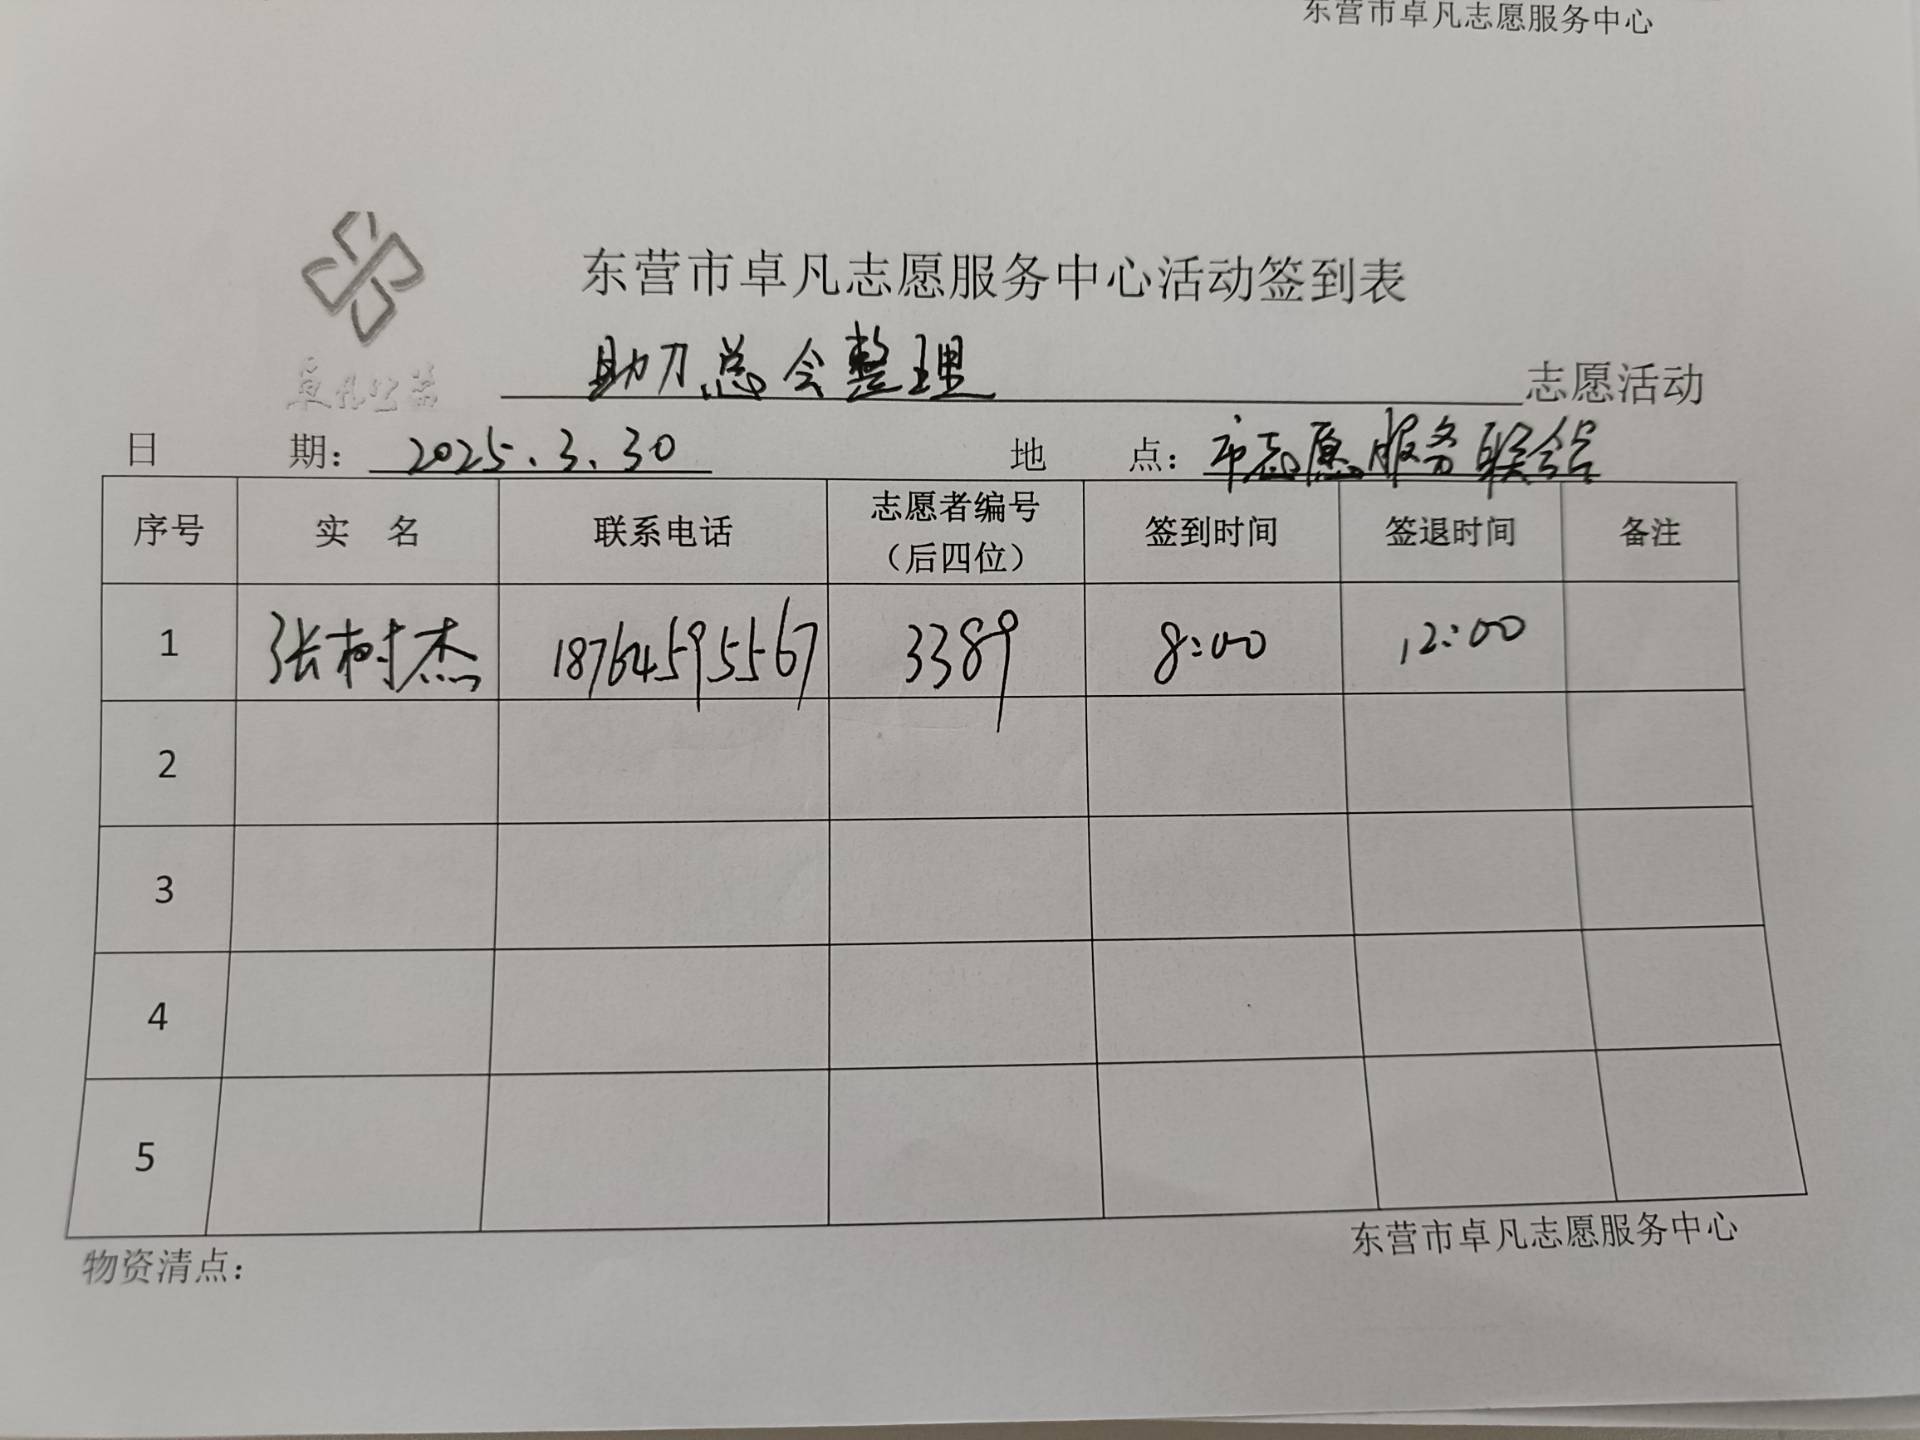 东营市卓凡志愿服务中心
东营市卓凡志愿服务中心活动签到表
卓凡公益
助力总会整理 志愿活动
日 期: 2025.3.30 地 点: 市志愿服务联合会
序号 实 名 联系电话 志愿者编号（后四位） 签到时间 签退时间 备注
1 张树杰 18764595567 3389 8:00 12:00
2
3
4
5
物资清点: 东营市卓凡志愿服务中心